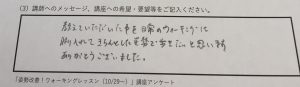 (3) 講師へのメッセージ、講座への希望・要望等をご記入ください。
教えていただいた事を日常のウォーキングに
取り入れてきちんとした姿勢で歩きたいと思います
ありがとうございました。
「姿勢改善!ウォーキングレッスン(10/29~)」講座アンケート